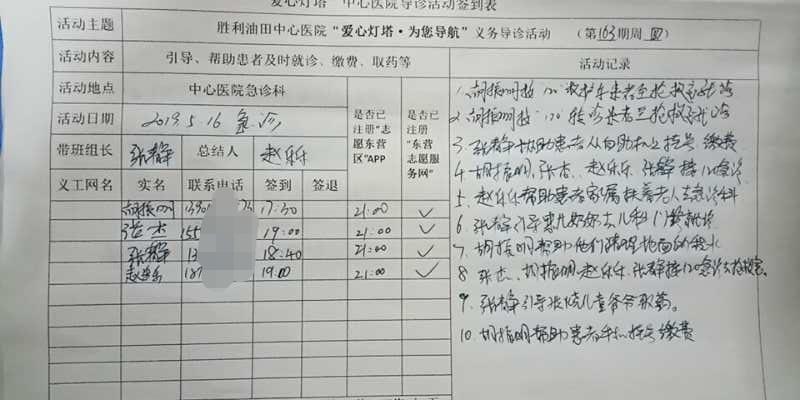 爱心灯塔 中心医院导诊活动签到表
活动主题 胜利油田中心医院“爱心灯塔·为您导航”义务导诊活动 (第163期周四)
活动内容 引导、帮助患者及时就诊、缴费、取药等 活动记录
活动地点 中心医院急诊科 是否已注册“志愿东营区”APP 是否已注册“东营志愿服务网”
活动日期 2019.5.16 急诊
带班组长 张静 总结人 赵乐乐
义工网名 实名 联系电话 签到 签退
胡振明 17:30 21:00 ✓
张杰 155 19:00 21:00 ✓
张静 18:40 21:00 ✓
赵乐乐 19:00 21:00 ✓
1. 胡振明接120救护车患者至抢救室
2. 胡振明接120转诊患者至抢救室
3. 张静协助患者从自助机上挂号缴费
4. 胡振明、张杰、赵乐乐、张静接120急诊
5. 赵乐乐帮助患者家属扶着老人去急诊科
6. 张静引导患儿
7. 胡振明帮助他们清理地面的
8. 张杰、胡振明、赵乐乐、张静接120急诊去抢救室
9. 张静引导发烧儿童爷爷取药。
10. 胡振明帮助患者手机挂号缴费